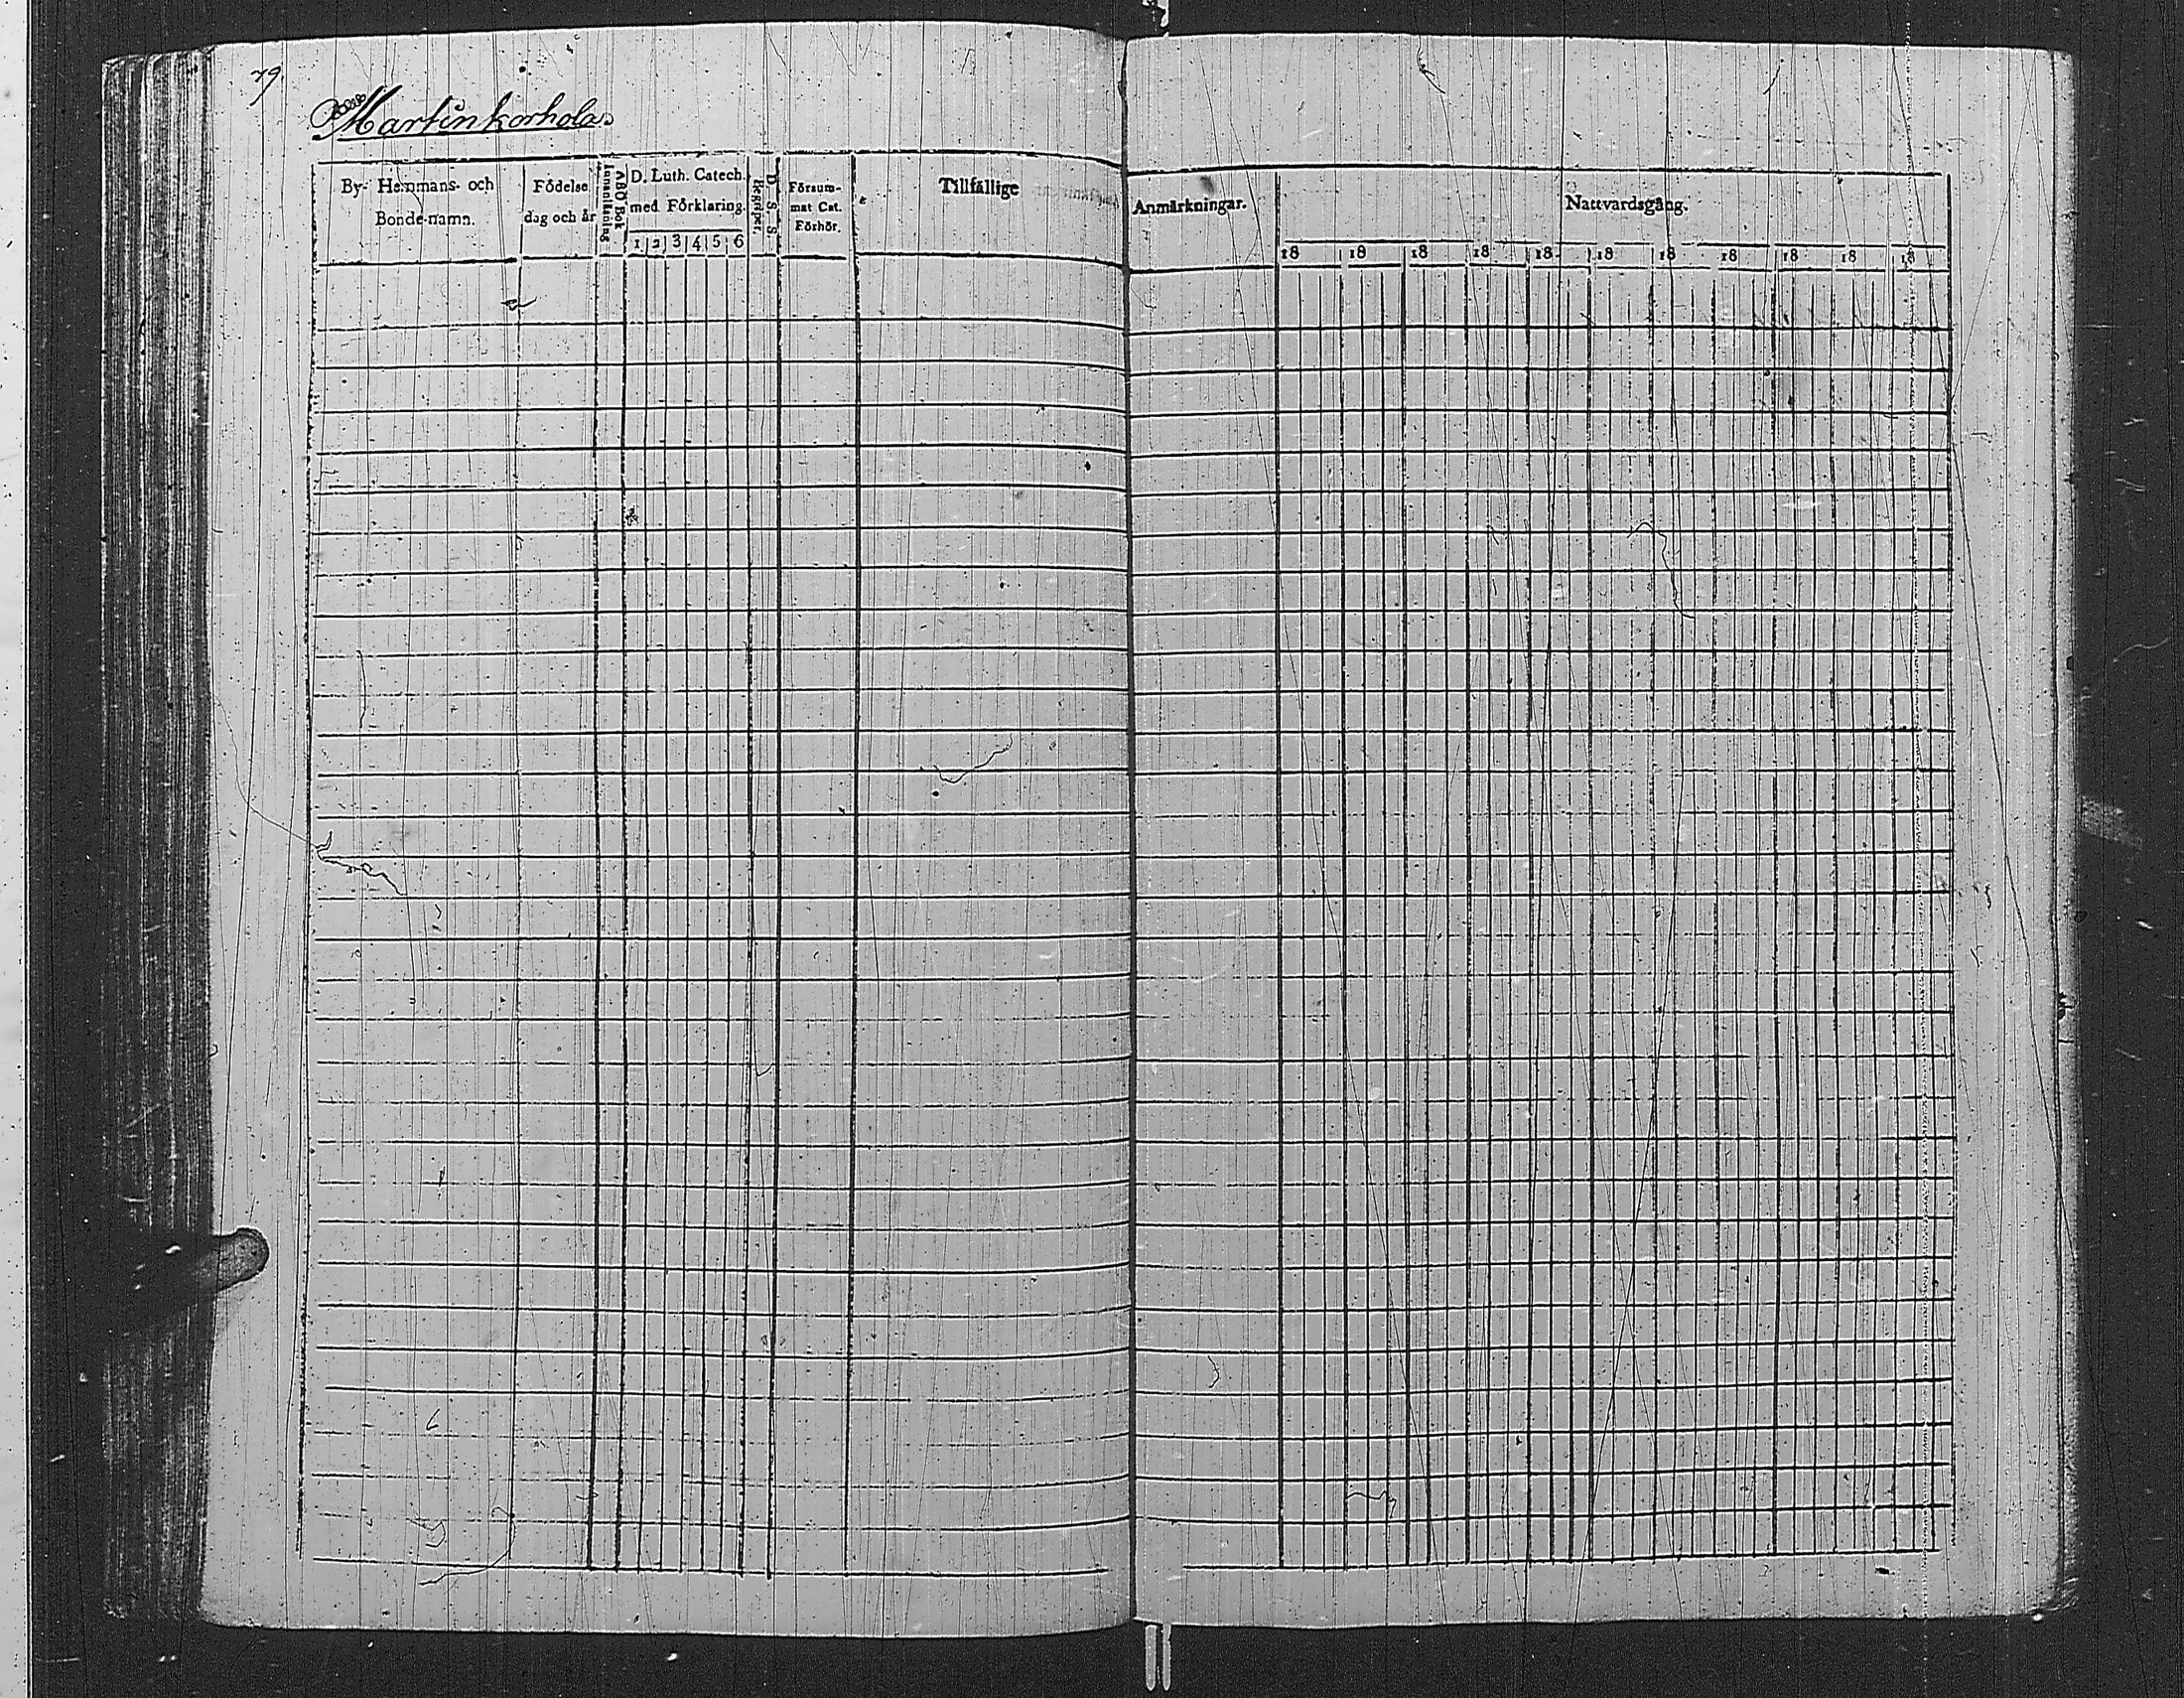 79.
Martinkorhola
By- Hemmans- och
Bonde-namn.
Födelse
dag och år
ABC Bok
Innanläsning
D. Luth. Catech.
med Förklaring.
1 2 3 4 5 6
D. S. S.
Begriper.
Försum-
mat Cat.
Förhör.
Tillfällige
Anmärkningar.
Nattvardsgång.
18 18 18 18 18 18 18 18 18 18 18